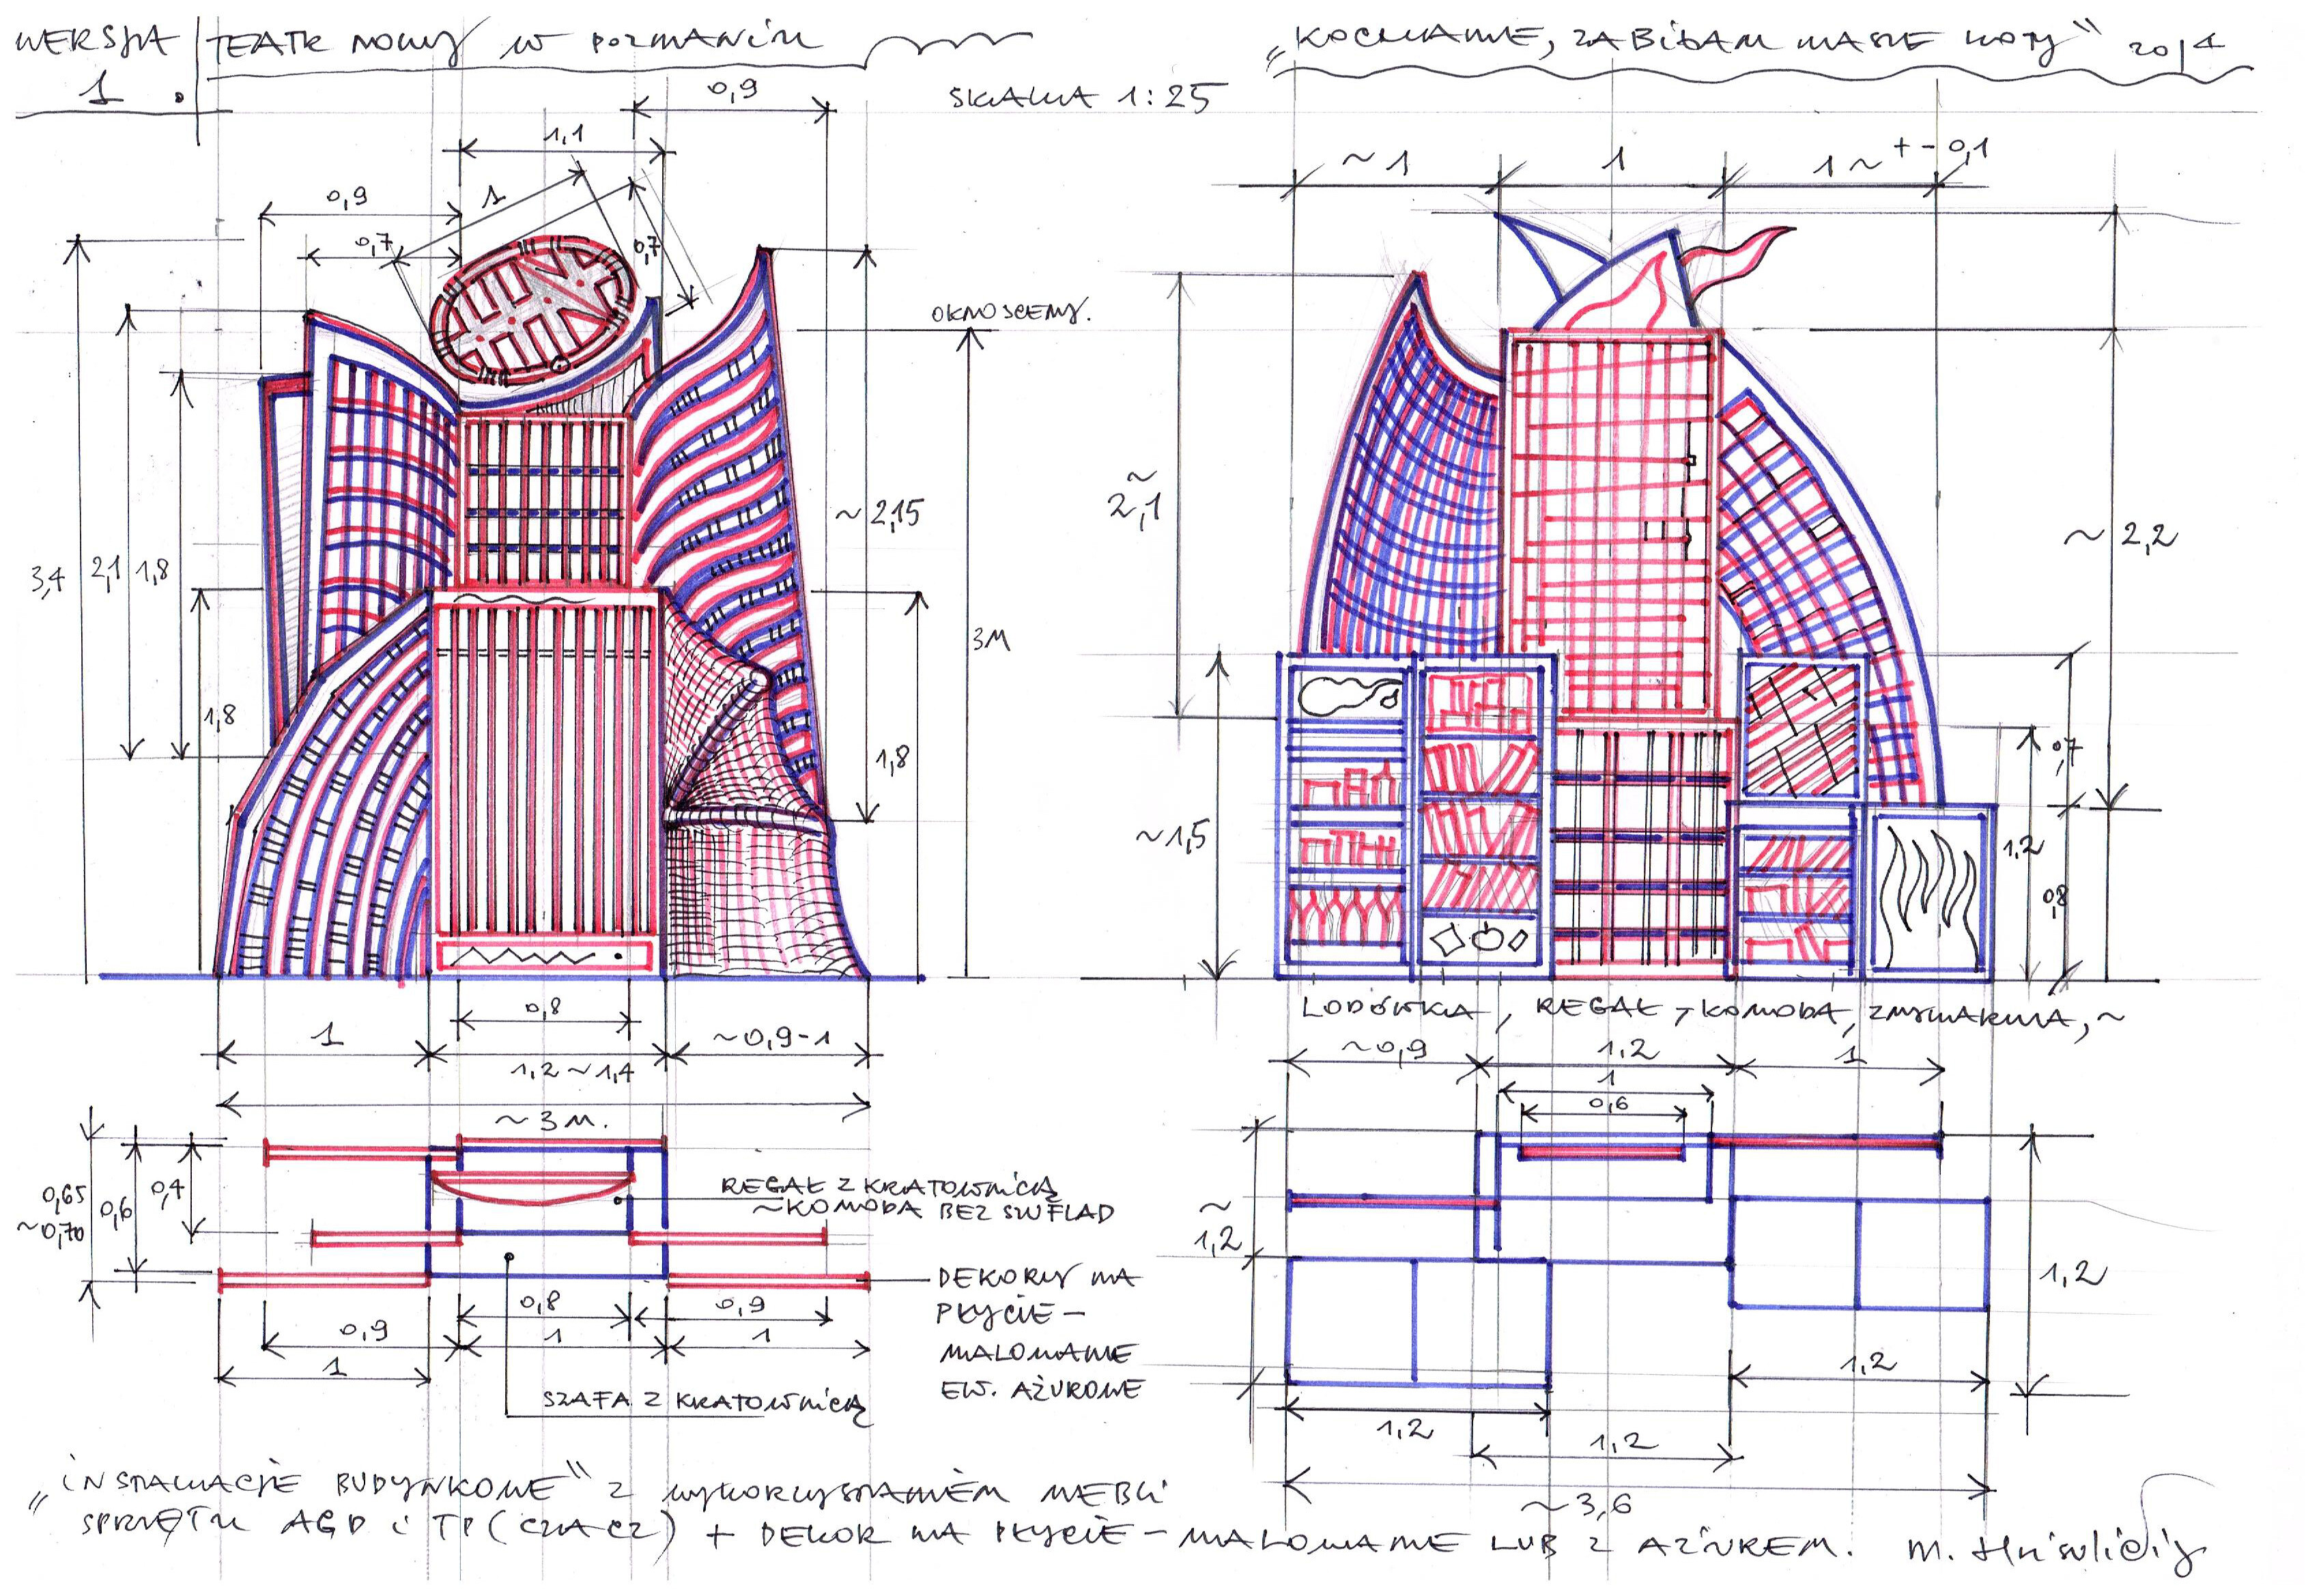 WERSJA 1.
TEATR NOWY W POZNANIU
„KOCHANIE, ZABIŁAM NASZE KOTY" 2014
SKALA 1:25
0,9
1,1
1
0,9
0,7
0,7
OKNO SCENY.
3,4
2,1
1,8
1,8
~2,15
1,8
3M
0,8
1
1,2~1,4
~0,9-1
~3M.
~1
1
1~ +-0,1
~2,1
~2,2
~1,5
0,7
1,2
0,8
LODÓWKA, REGAŁ, KOMODA, ZMYWARKA, ~
~0,9
1,2
1
1
0,6
0,65
~0,70
0,6
0,4
REGAŁ Z KRATOWNICĄ
~KOMODA BEZ SZUFLAD
DEKORY NA
PŁYCIE –
MALOWANE
EW. AŻUROWE
0,8
0,9
0,9
1
1
1
SZAFA Z KRATOWNICĄ
~1,2
1,2
1,2
1,2
1,2
~3,6
„INSTALACJE BUDYNKOWE" Z WYKORZYSTANIEM MEBLI
SPRZĘTU AGD i TP (CZACZ) + DEKOR NA PŁYCIE – MALOWANE LUB Z AŻUREM.